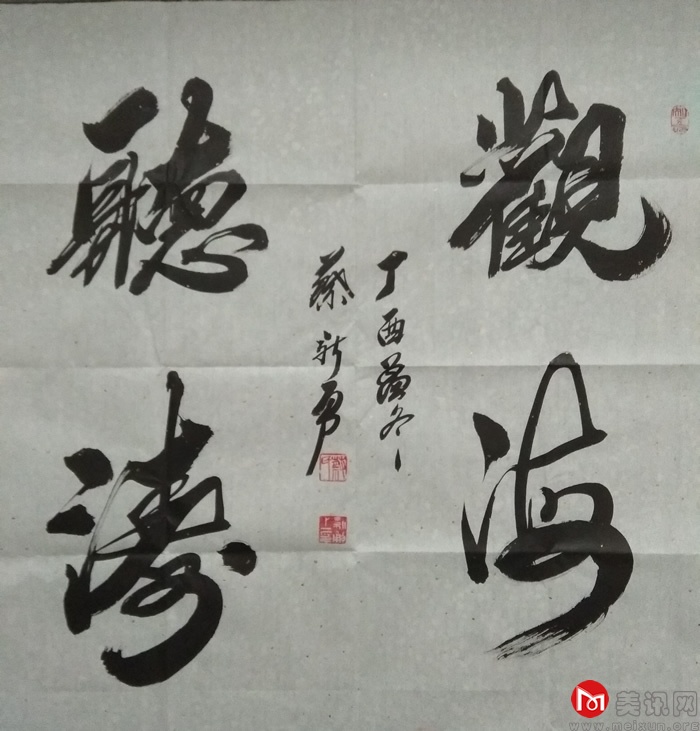 觀海
聽濤
丁酉
冬
蔡新勇
美讯网
www.meixun.org